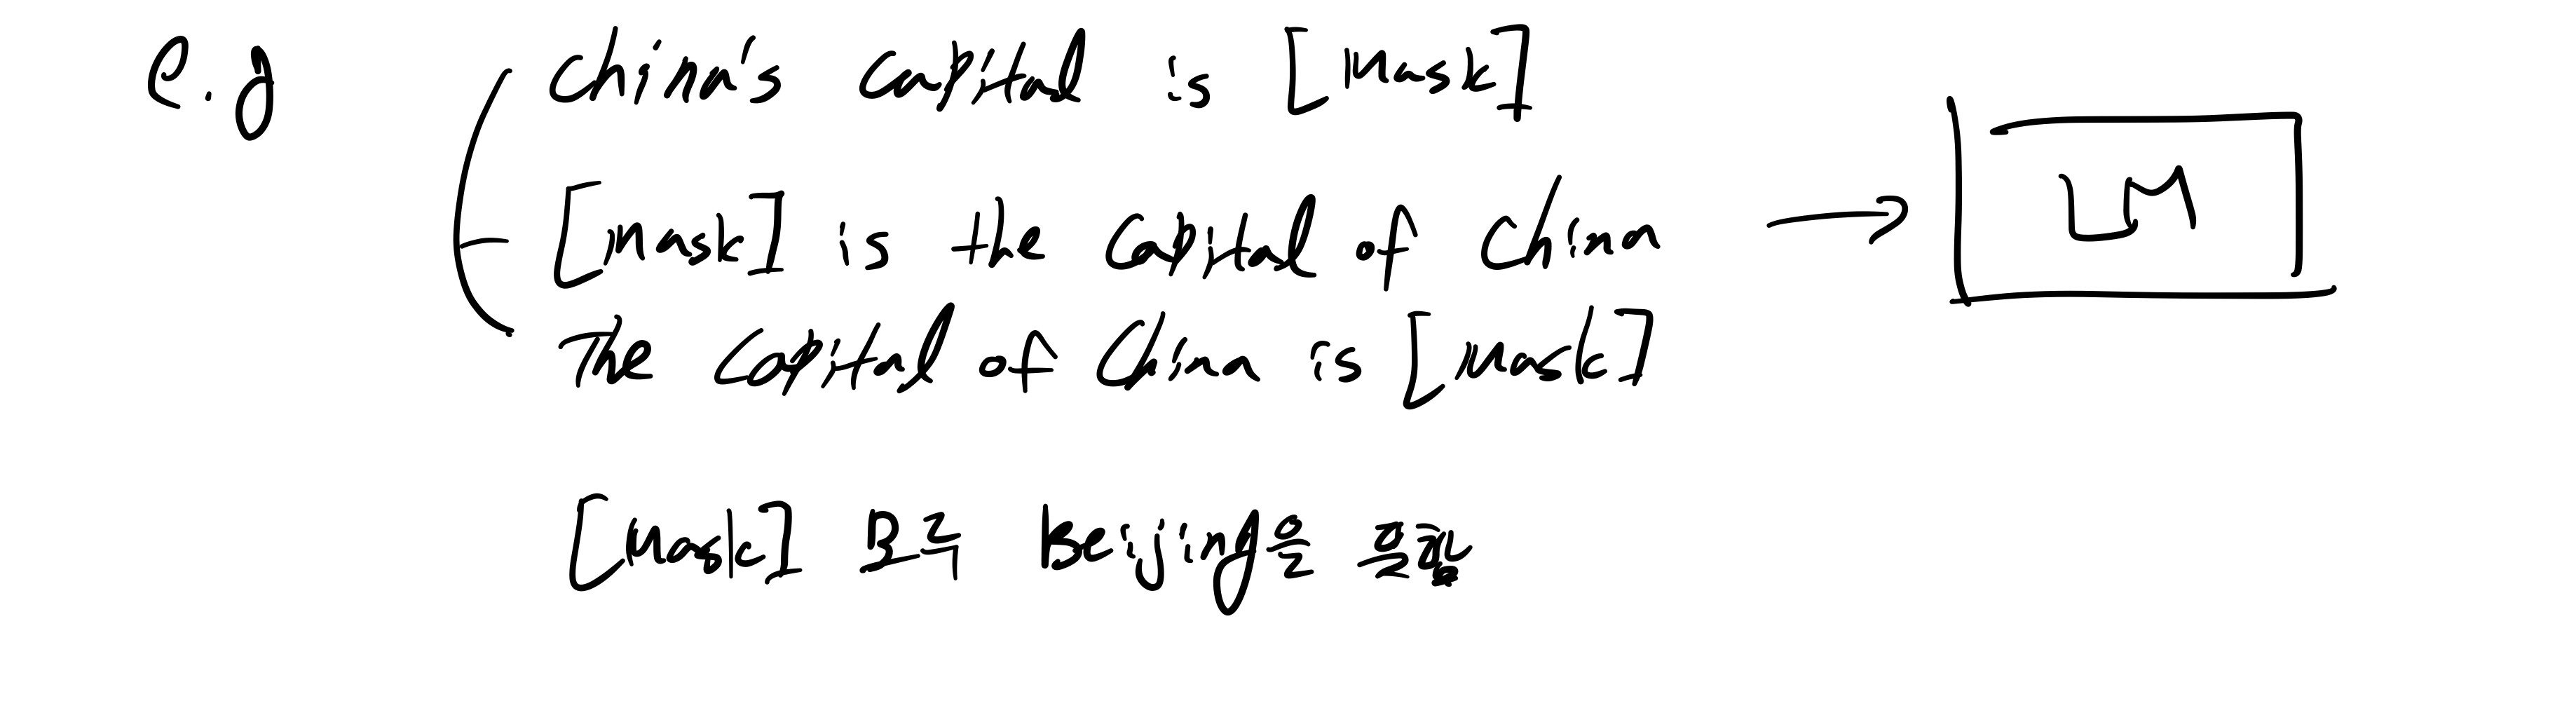 e.g China's Capital is [Mask]
[Mask] is the Capital of China → LM
The Capital of China is [Mask]
[Mask] 모두 Beijing을